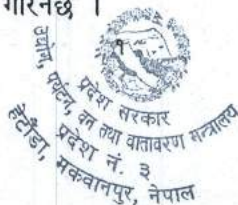 गरिनेछ ।
१
प्रदेश सरकार
उद्योग, पर्यटन, वन तथा वातावरण मन्त्रालय
प्रदेश नं. ३
हेटौंडा, मकवानपुर, नेपाल